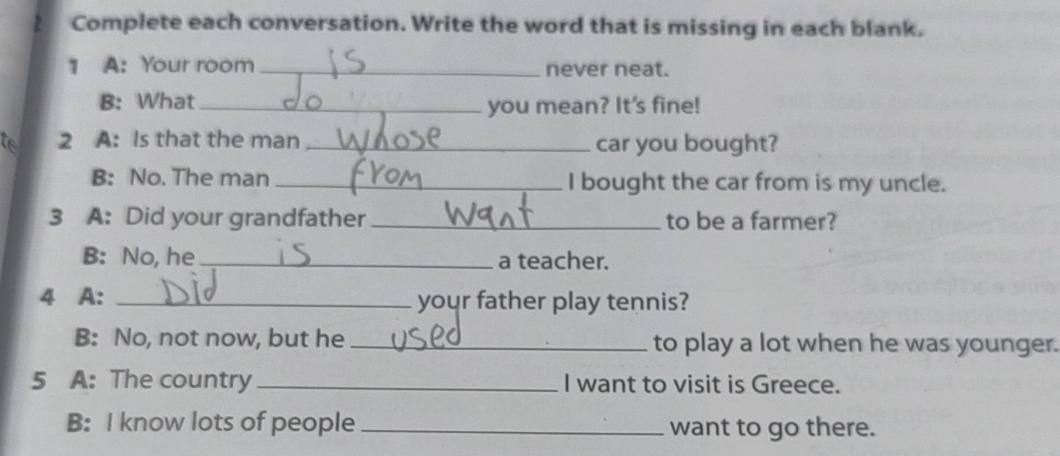 2 Complete each conversation. Write the word that is missing in each blank.
1 A: Your room is never neat.
B: What do you mean? It's fine!
2 A: Is that the man whose car you bought?
B: No. The man from I bought the car from is my uncle.
3 A: Did your grandfather want to be a farmer?
B: No, he is a teacher.
4 A: Did your father play tennis?
B: No, not now, but he used to play a lot when he was younger.
5 A: The country I want to visit is Greece.
B: I know lots of people want to go there.